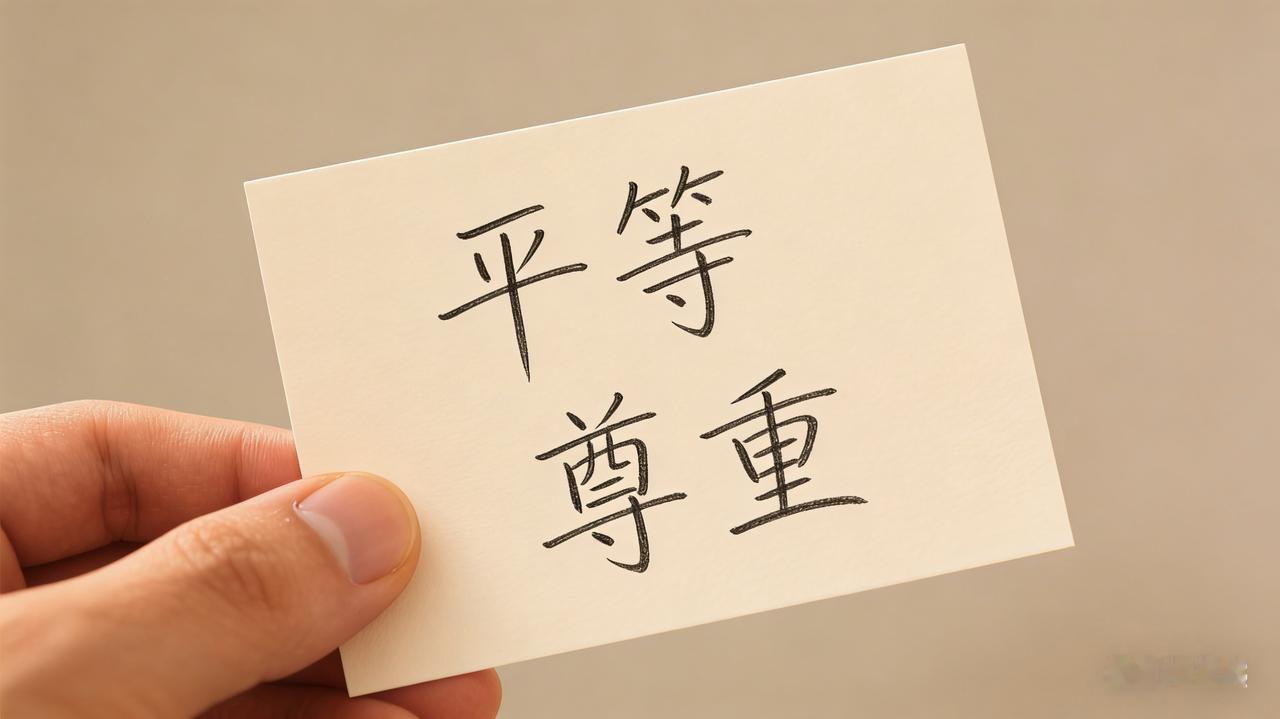 平等
尊重